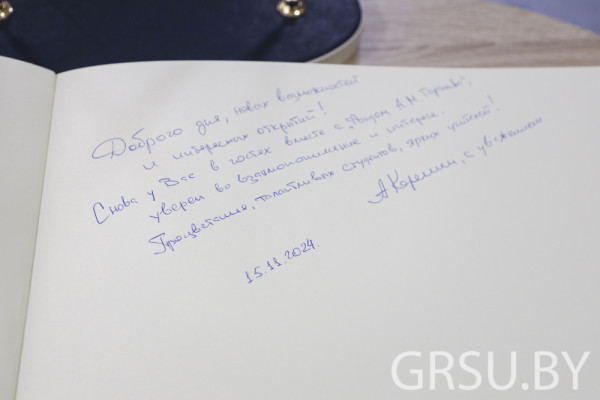 Доброго дня, новых возможностей
и интересных открытий!
Снова у Вас в гостях вместе с "Фондом А.М. Горчакова",
уверен во взаимопонимание и интерес.
Процветания, талантливых студентов, ярких учителей!
А Карелин, с уважением
15.11.2024.
GRSU.BY